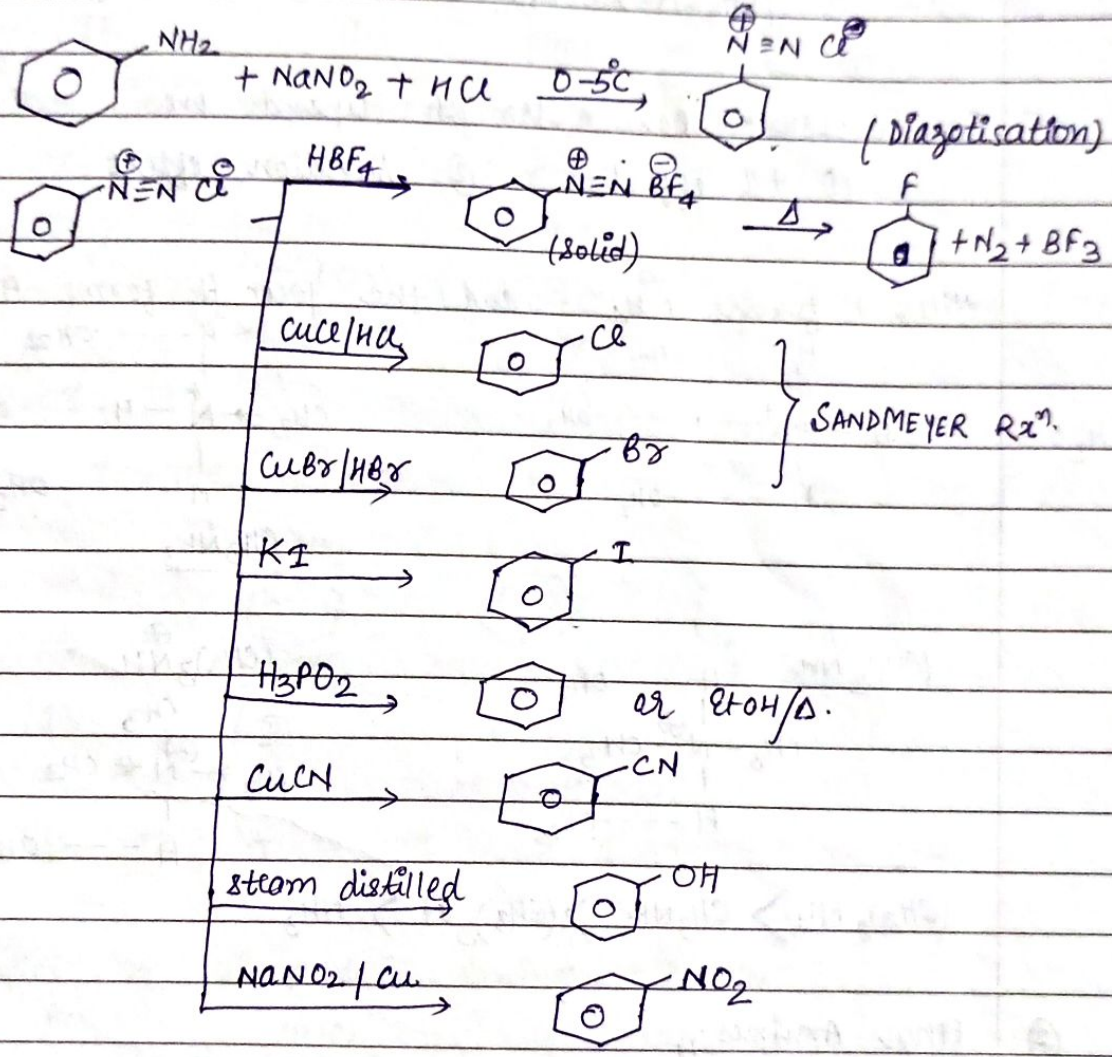 NH₂
+ NaNO₂ + HCl 0-5°C ⊕ N≡N Cl⊖
(Diazotisation)
⊕ N≡N Cl⊖ HBF₄ ⊕ N≡N ⊖ BF₄ Δ F
(solid) + N₂ + BF₃
CuCl/HCl Cl
SANDMEYER Rxⁿ.
CuBr/HBr Br
KI I
H₃PO₂ or EtOH/Δ.
CuCN CN
steam distilled OH
NaNO₂/Cu NO₂